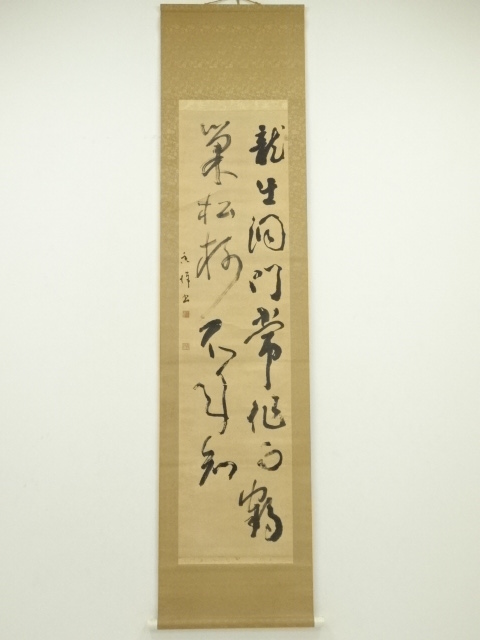 龍生洞門常作雨鶴
巣松樹不年知
書